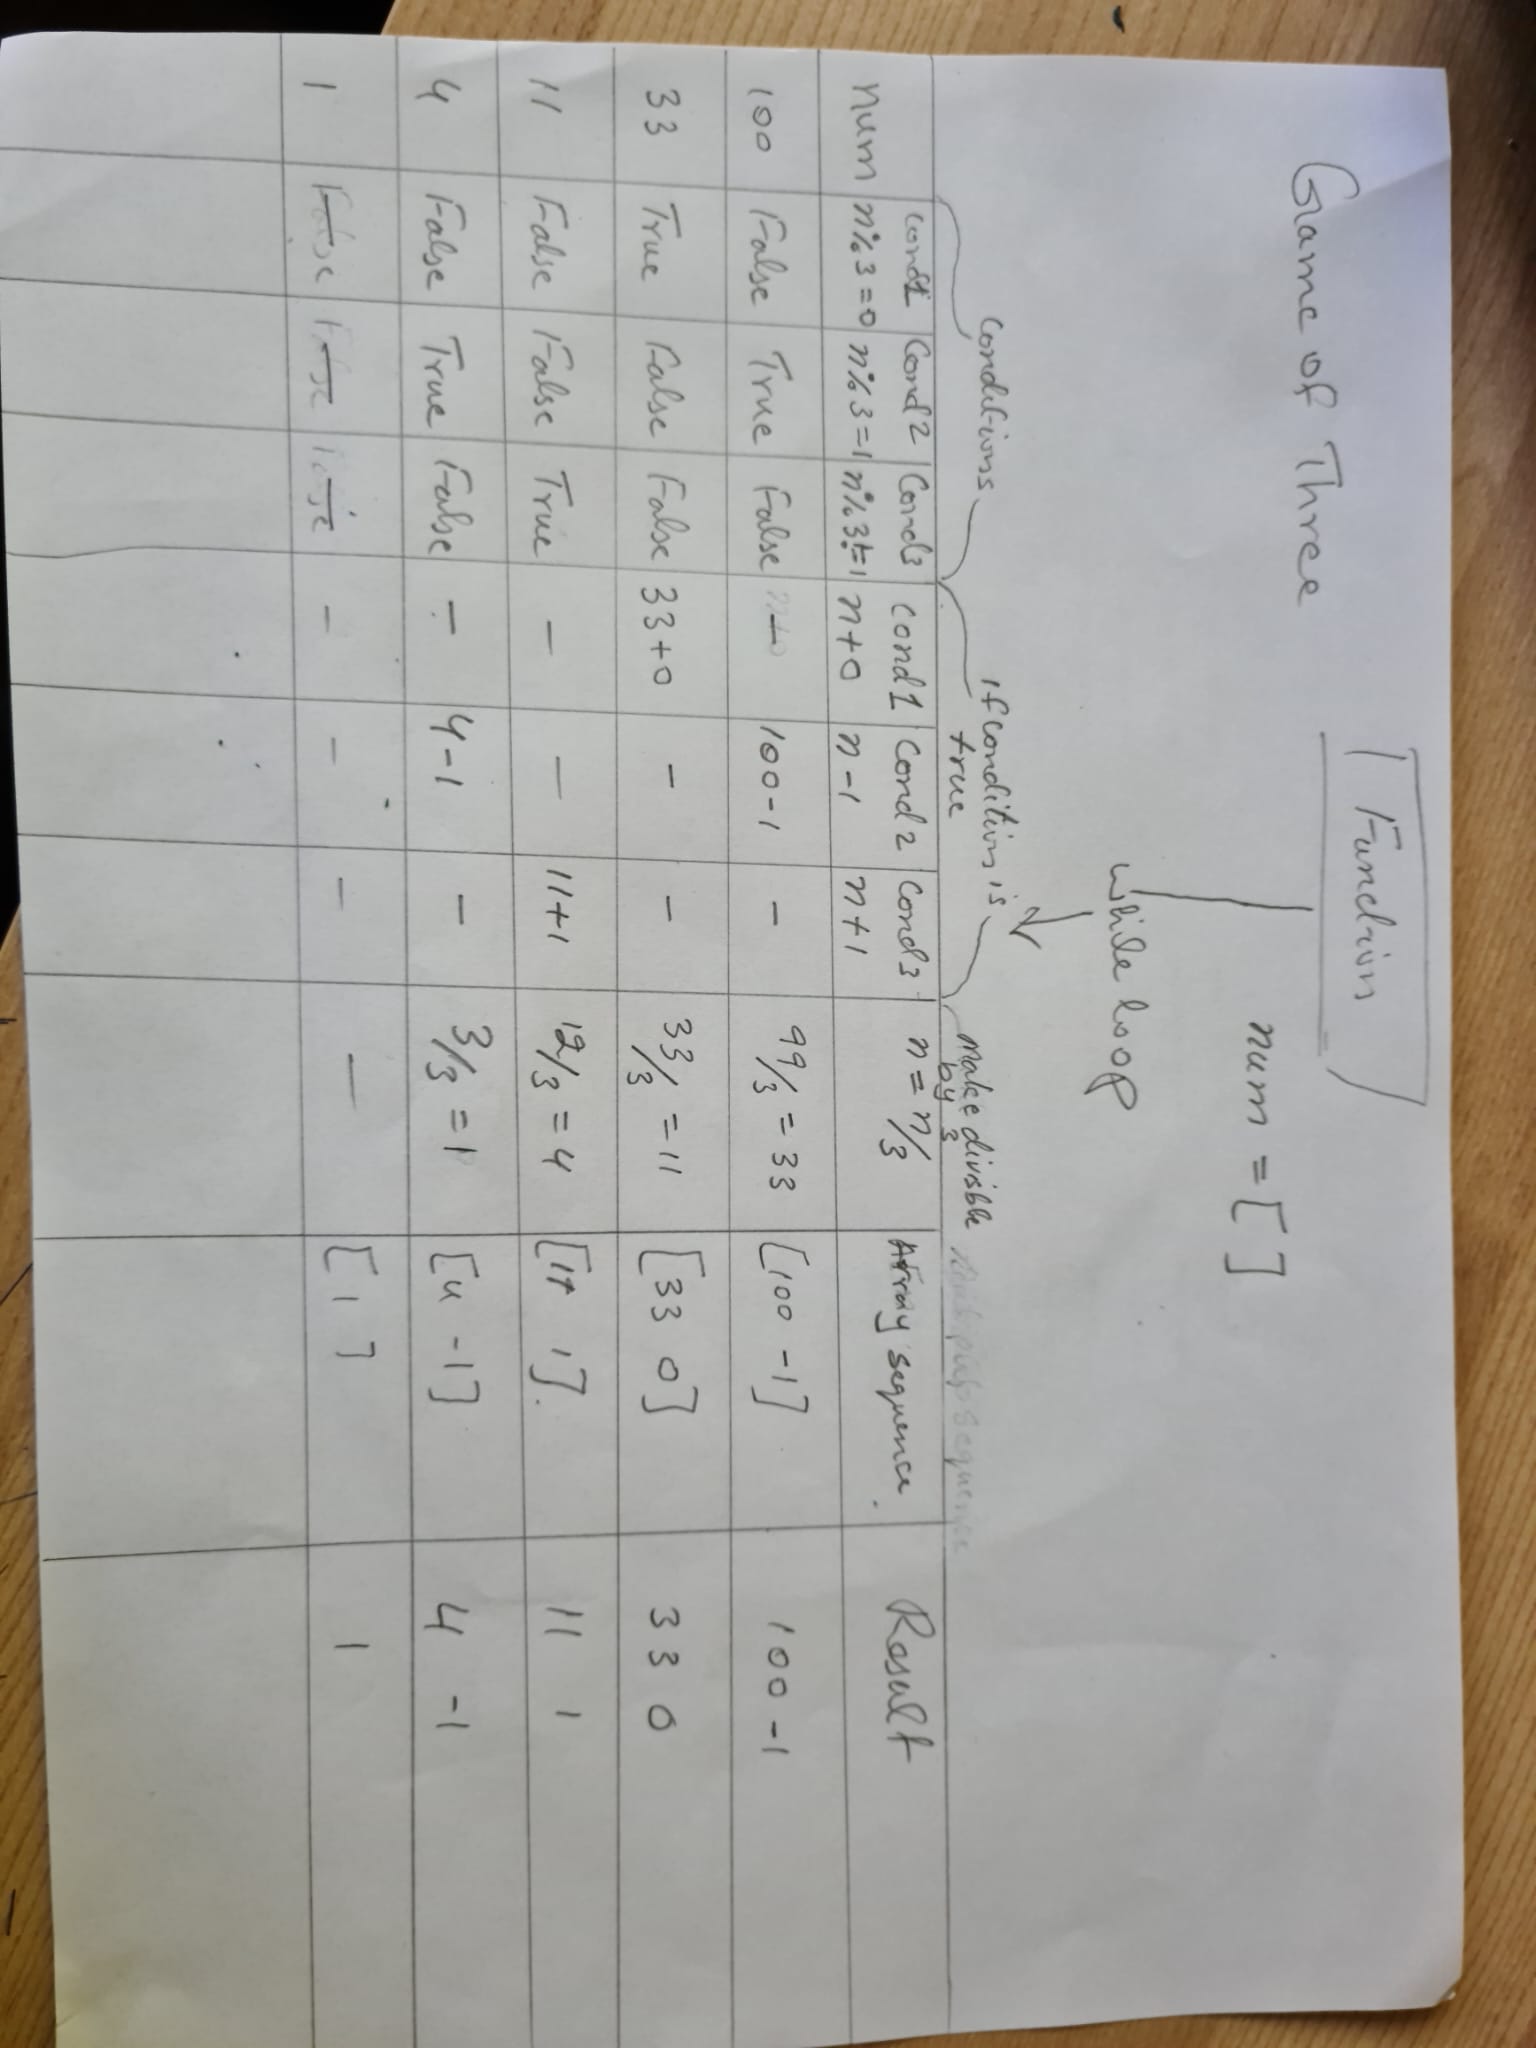 Game of Three
Function
num = [ ]
while loop
conditions
if condition is true
make divisible by 3
output sequence
num | cond1 n%3=0 | cond2 n%3=1 | cond3 n%3!=1 | cond1 n+0 | cond2 n-1 | cond3 n+1 | n = n/3 | Array sequence. | Result
100 | False | True | False | - | 100-1 | - | 99/3 = 33 | [100 -1] | 100 -1
33 | True | False | False | 33+0 | - | - | 33/3 = 11 | [33 0] | 33 0
11 | False | False | True | - | - | 11+1 | 12/3 = 4 | [11 1]. | 11 1
4 | False | True | False | - | 4-1 | - | 3/3 = 1 | [4 -1] | 4 -1
1 | - | - | - | - | - | - | - | [1] | 1